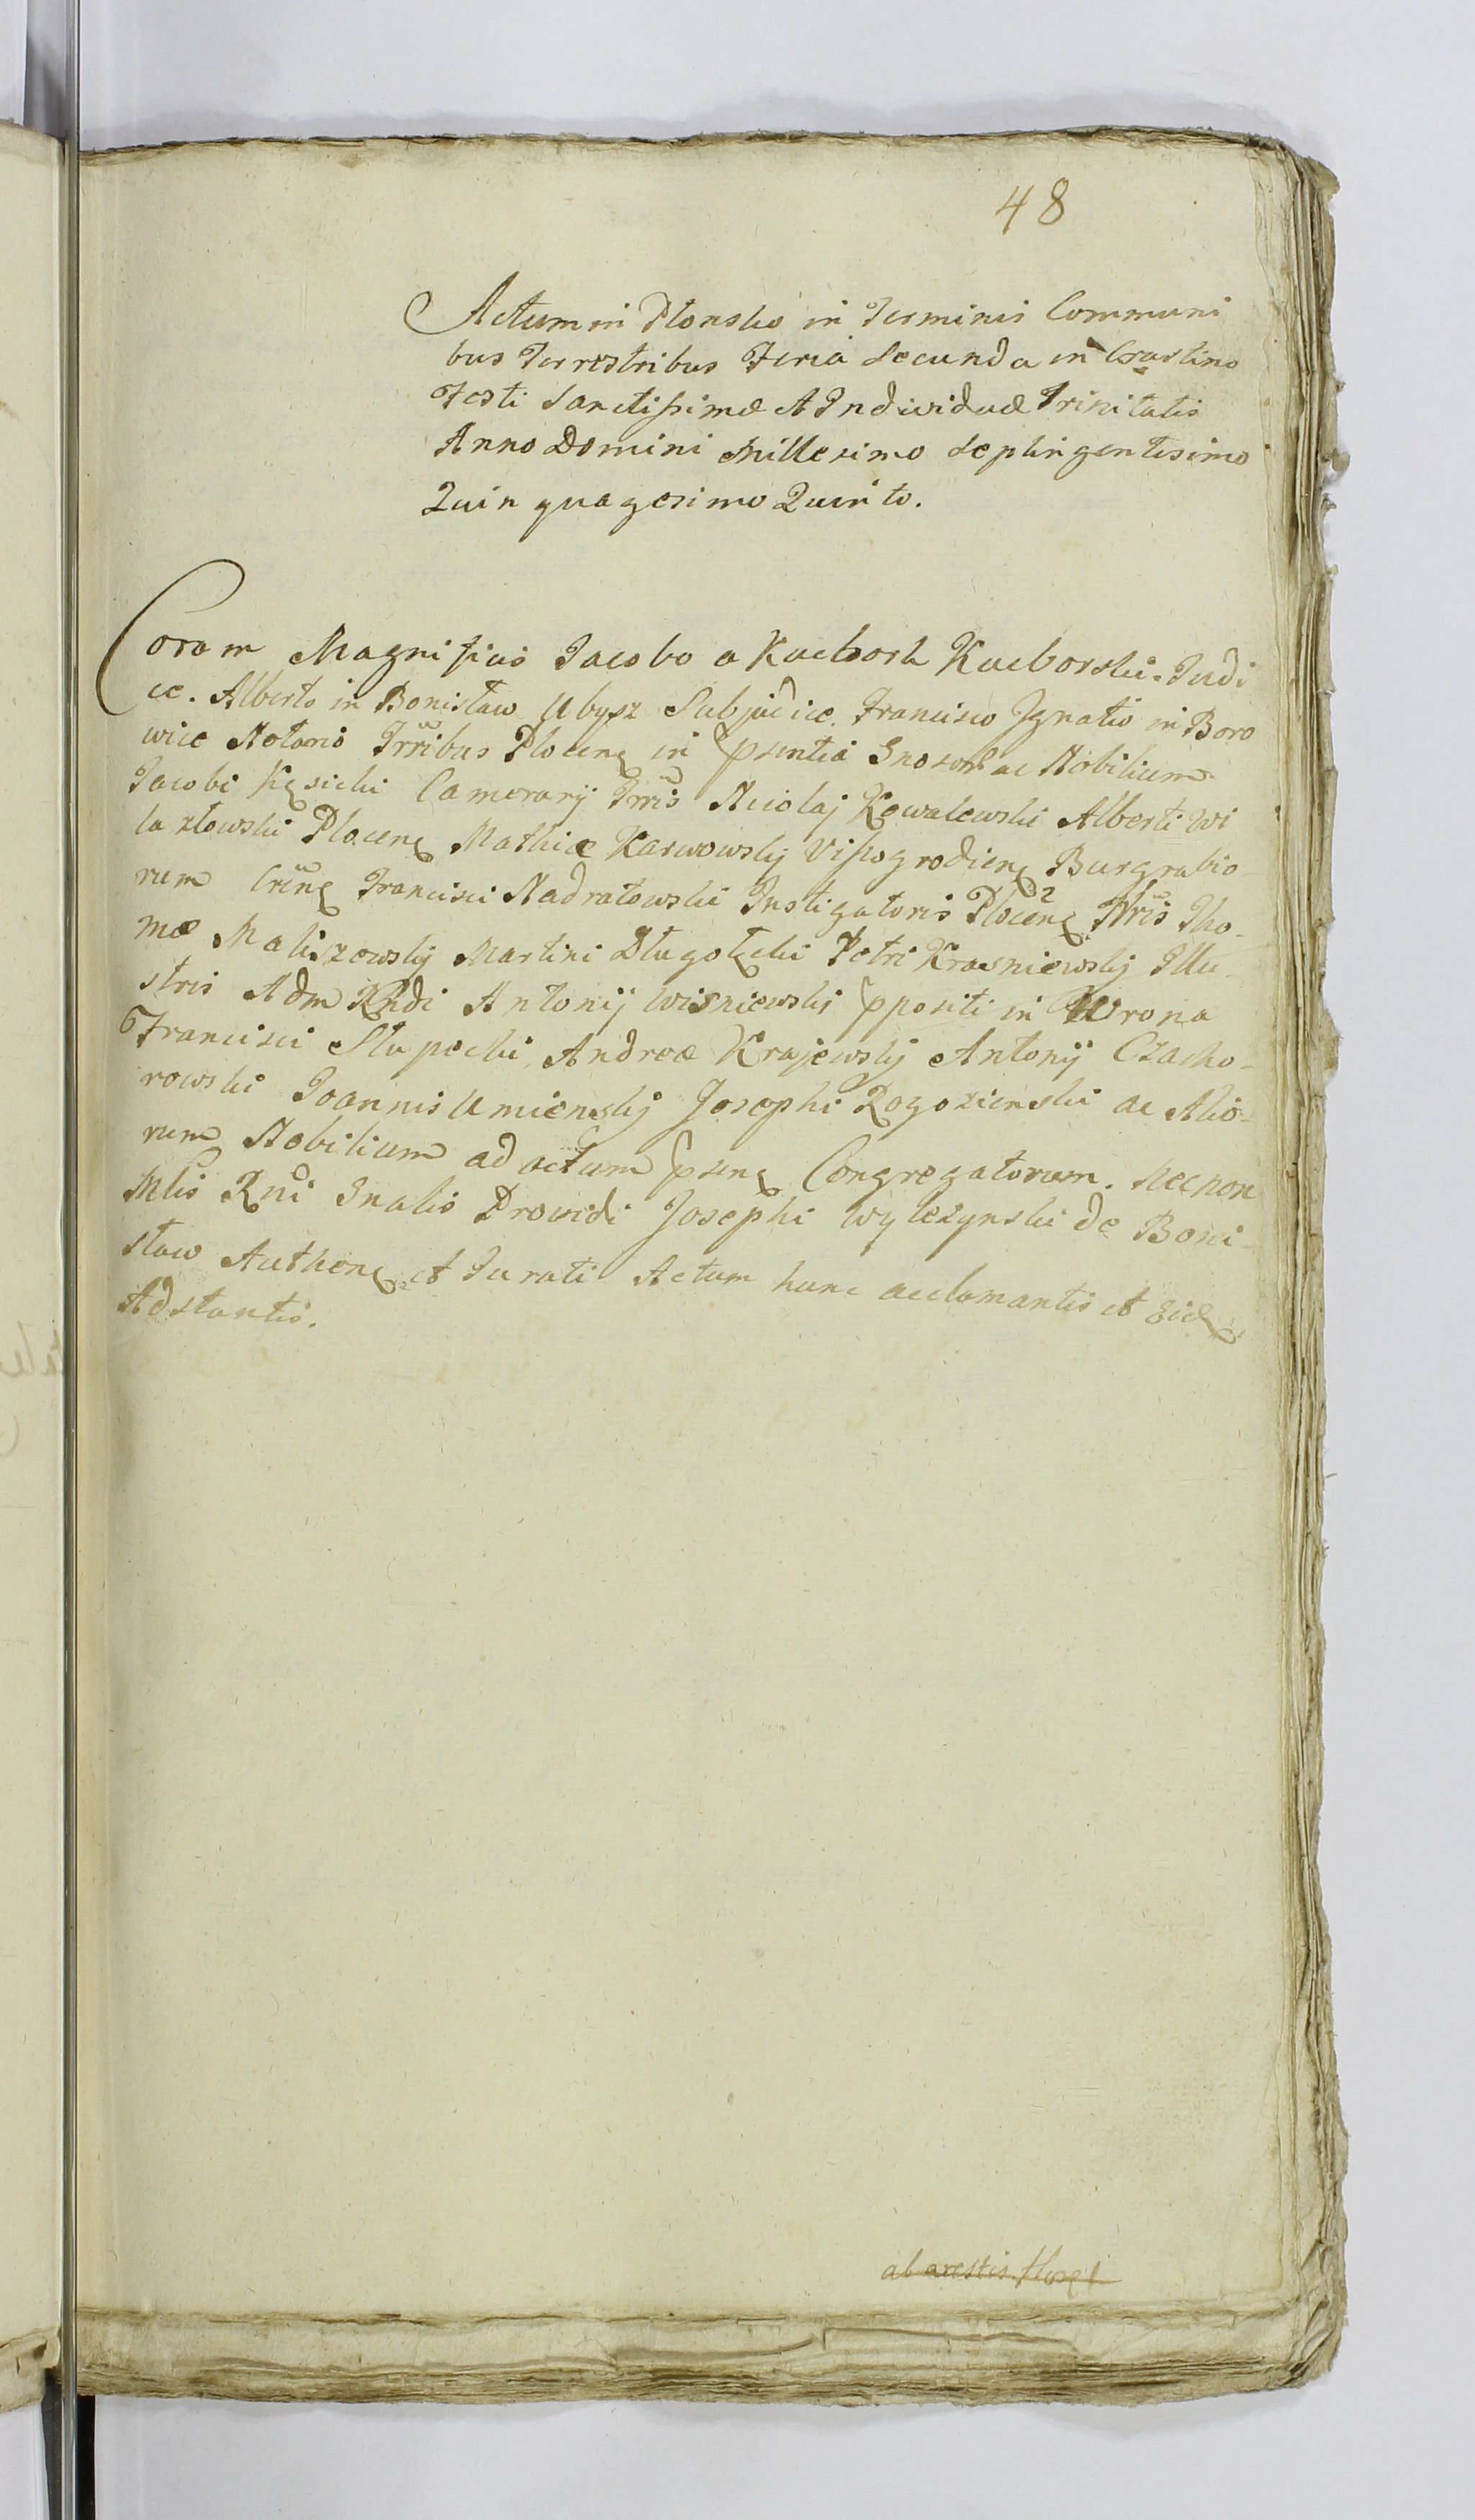 48
Actum in Płonsko in Terminis Communi
bus Terrestribus Feria Secunda in Crastino
Festi Sanctissimæ et Individuæ Trinitatis
Anno Domini Millesimo Septingentesimo
Quinquagesimo Quinto.
Coram Magnificis Jacobo a Kuchork Kucborski Judi
ce. Alberto in Bonisław Ubysz Subjudice. Francisco Ignatio in Boro
wice Notario Trribus Plocen in psentia Gnosor ac Nobilium
Jacobi Kęsicki Camerarij Trris Nicolaj Kowalewski Alberti Wi
laxłowski Plocen Mathiæ Karwowskj Vissogrodien Burgrabio
rum Cren Francisci Nadratowski Instigatoris Plocen Trris Tho-
mæ Maliszowskj Martini Długołęcki Petri Krasniewskj Illu-
stris Adm Rndi Antonij Wisniewski ppositi in Wrona
Francisci Słupecki Andreæ Krajewskj Antonij Czacho-
rowski Joannis Umienskj Josephi Rogozienski ac Alio-
rum Nobilium ad actum psen Congregatorum. Necnon
Mlis Rni Gnalis Providi Josephi Wylezynski de Boni-
sław Authen et Jurati Actum hunc acclamantis et Eid
Adstantis.
ab arestis